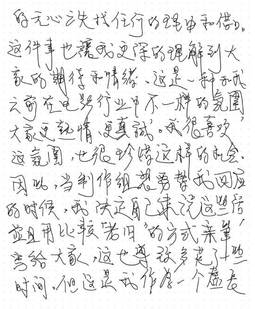 的无心之失找任何的理由和借口。
这件事也让我更深的理解到大
家的期待和情绪。这是一种和我
之前在电影行业中不一样的氛围
大家更热情，更真诚。我很喜欢
这氛围，也很珍惜这样的机会。
因此，当制作组想要帮我回应
的时候，我决定自己来说这些话
并且用比较“老旧”的方式亲笔
写给大家，这也导致多花了些
时间。但这是我作为一个